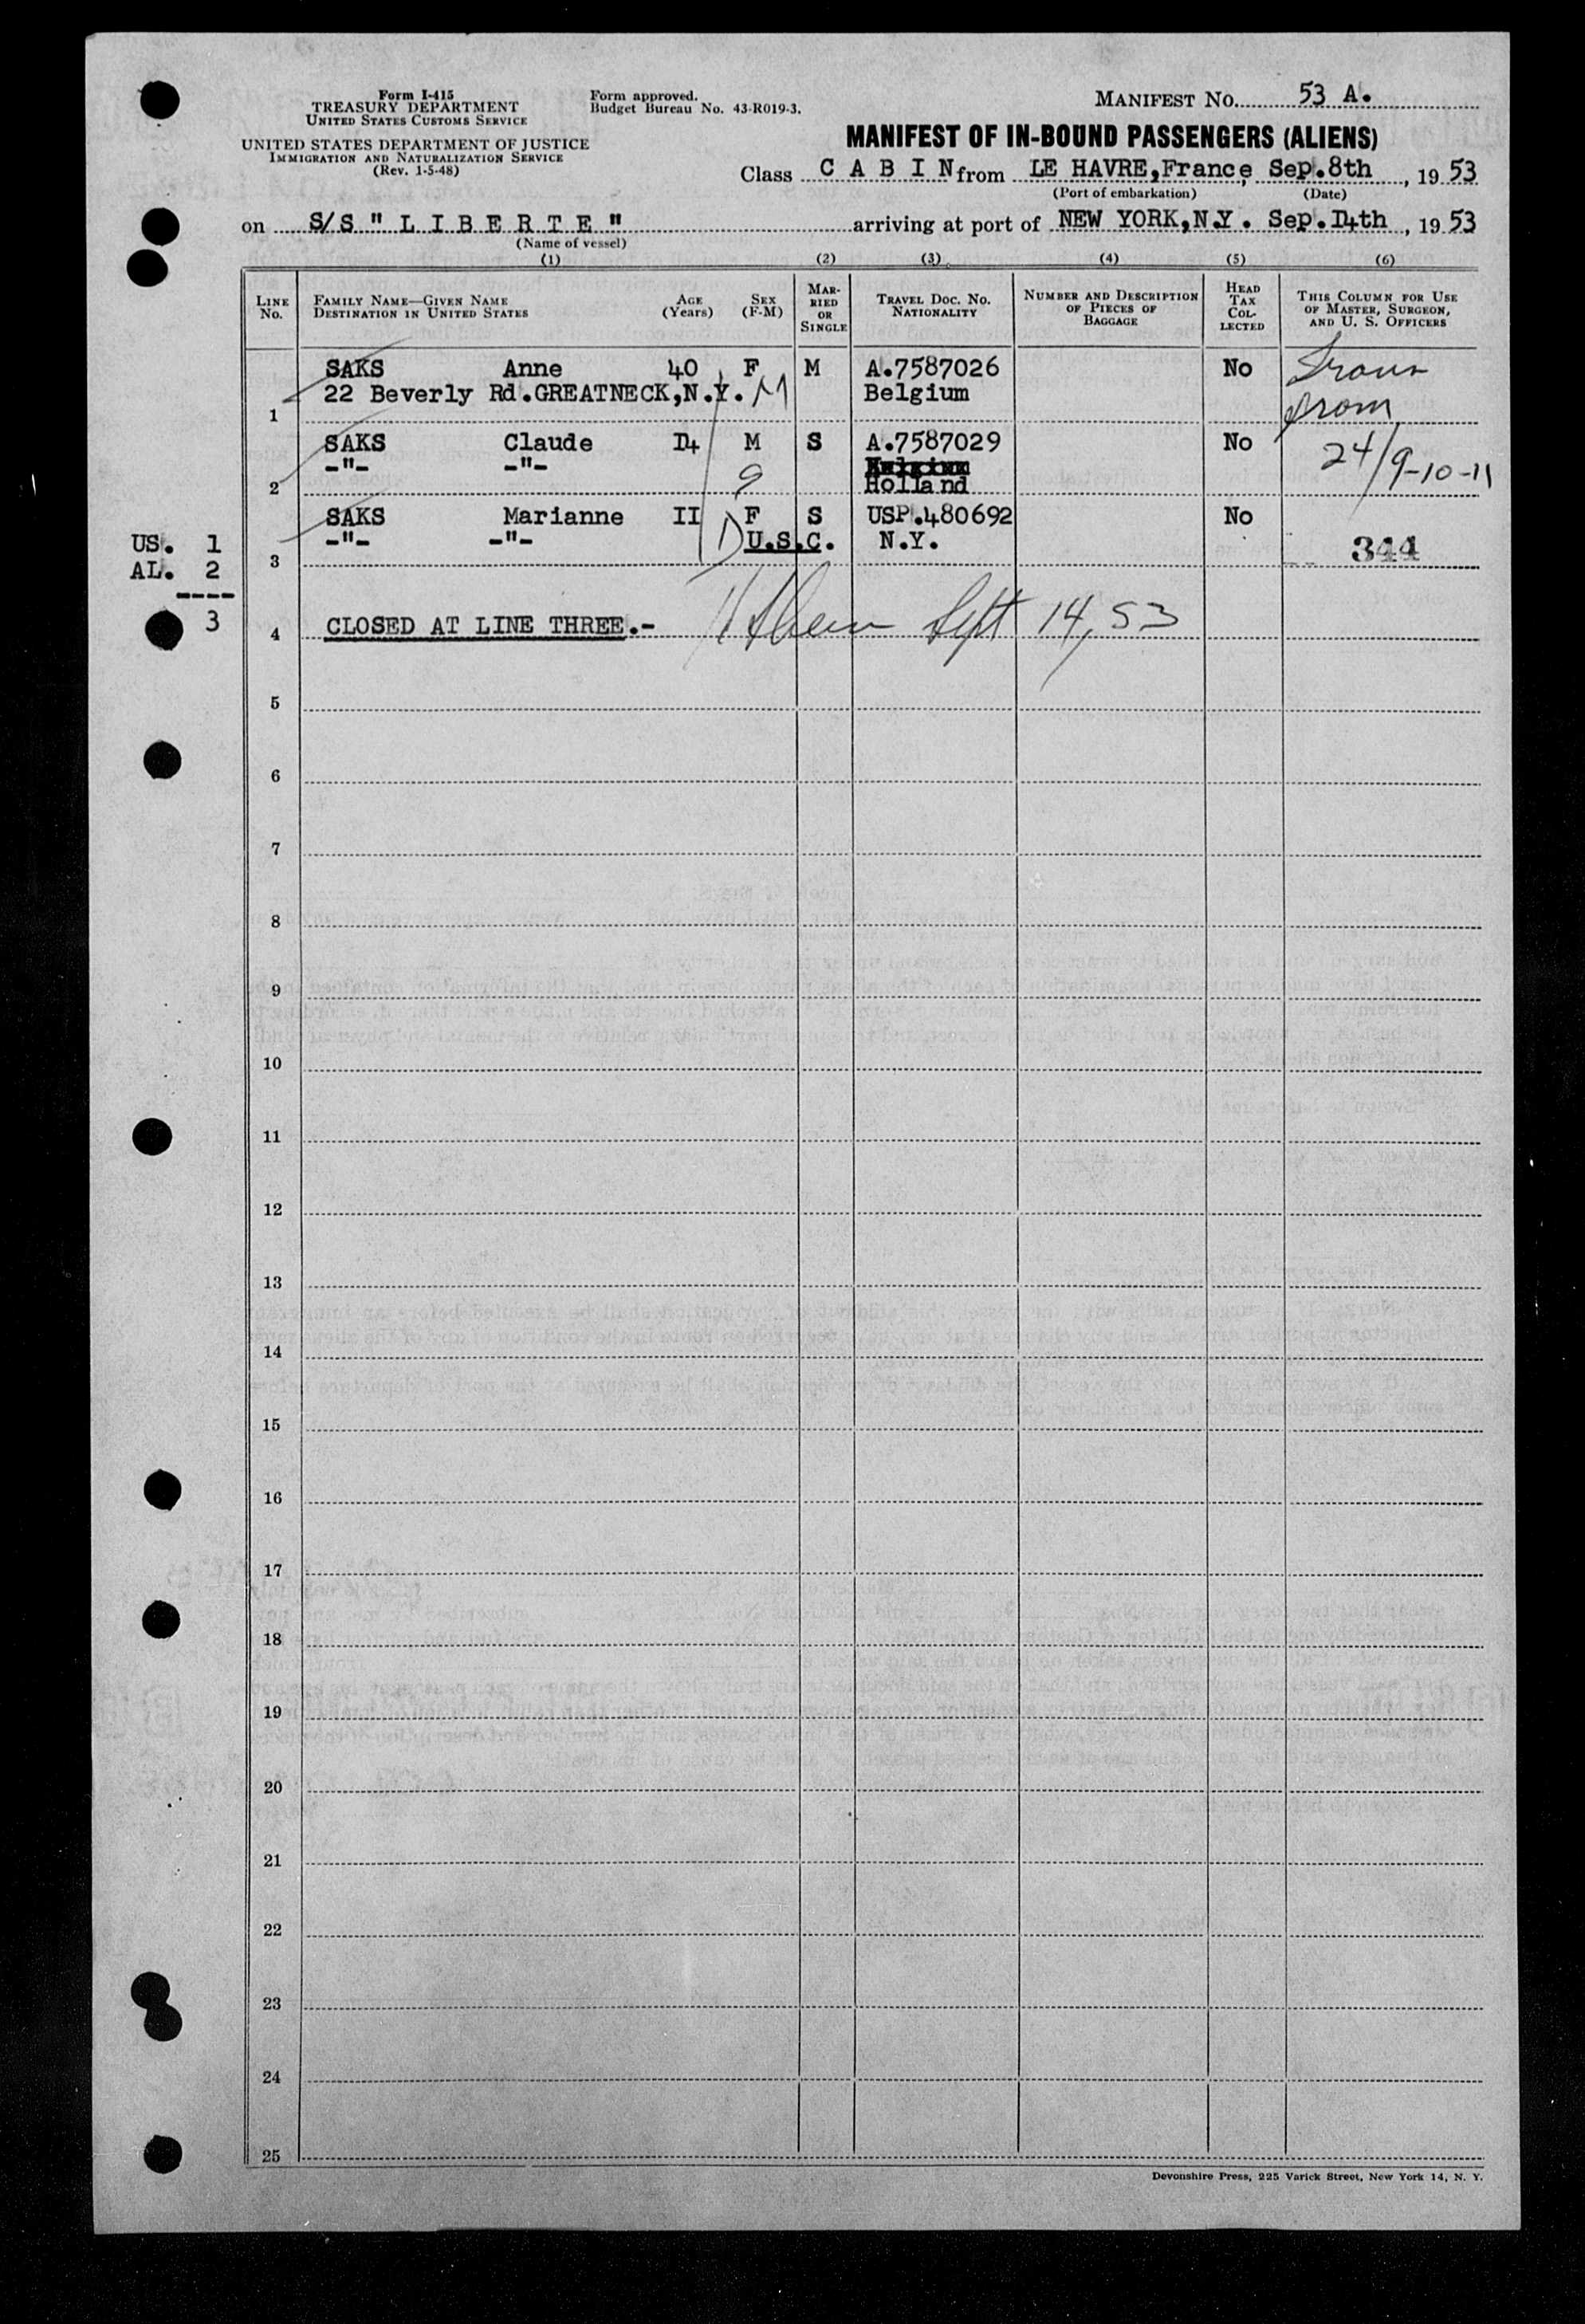 Form I-415
TREASURY DEPARTMENT
UNITED STATES CUSTOMS SERVICE
UNITED STATES DEPARTMENT OF JUSTICE
IMMIGRATION AND NATURALIZATION SERVICE
(Rev. 1-5-48)
Form approved.
Budget Bureau No. 43-R019-3.
MANIFEST NO. 53 A.
MANIFEST OF IN-BOUND PASSENGERS (ALIENS)
Class C A B I N from LE HAVRE, France, Sep. 8th, 19 53
(Port of embarkation) (Date)
on S/S " L I B E R T E " arriving at port of NEW YORK, N.Y. Sep. 14th, 19 53
(Name of vessel)
(1) (2) (3) (4) (5) (6)
LINE No. FAMILY NAME—GIVEN NAME DESTINATION IN UNITED STATES AGE (Years) SEX (F-M) MARRIED OR SINGLE TRAVEL DOC. NO. NATIONALITY NUMBER AND DESCRIPTION OF PIECES OF BAGGAGE HEAD TAX COLLECTED THIS COLUMN FOR USE OF MASTER, SURGEON, AND U. S. OFFICERS
SAKS Anne 40 F M A.7587026 No
22 Beverly Rd. GREATNECK, N.Y. Belgium
1
SAKS Claude 14 M S A.7587029 No 24/9-10-11
-"- -"- Holland
2
SAKS Marianne II F S USP.480692 No
-"- -"- U.S.C. N.Y. 344
3
US. 1
AL. 2
----
3
4 CLOSED AT LINE THREE.- Sept 14, 53
5
6
7
8
9
10
11
12
13
14
15
16
17
18
19
20
21
22
23
24
25
Devonshire Press, 225 Varick Street, New York 14, N. Y.